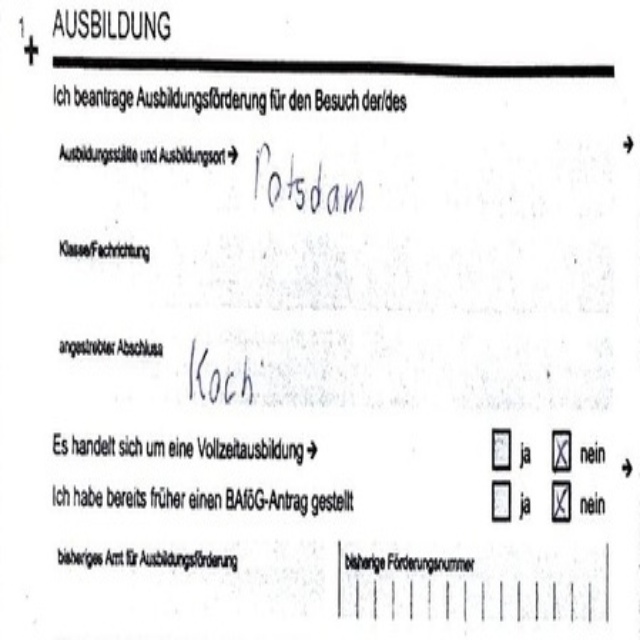 1 AUSBILDUNG
Ich beantrage Ausbildungsförderung für den Besuch der/des
Ausbildungsstätte und Ausbildungsort → Potsdam
Klasse/Fachrichtung
angestrebter Abschluss Koch
Es handelt sich um eine Vollzeitausbildung → ja nein
Ich habe bereits früher einen BAföG-Antrag gestellt ja nein
bisheriges Amt für Ausbildungsförderung bisherige Förderungsnummer